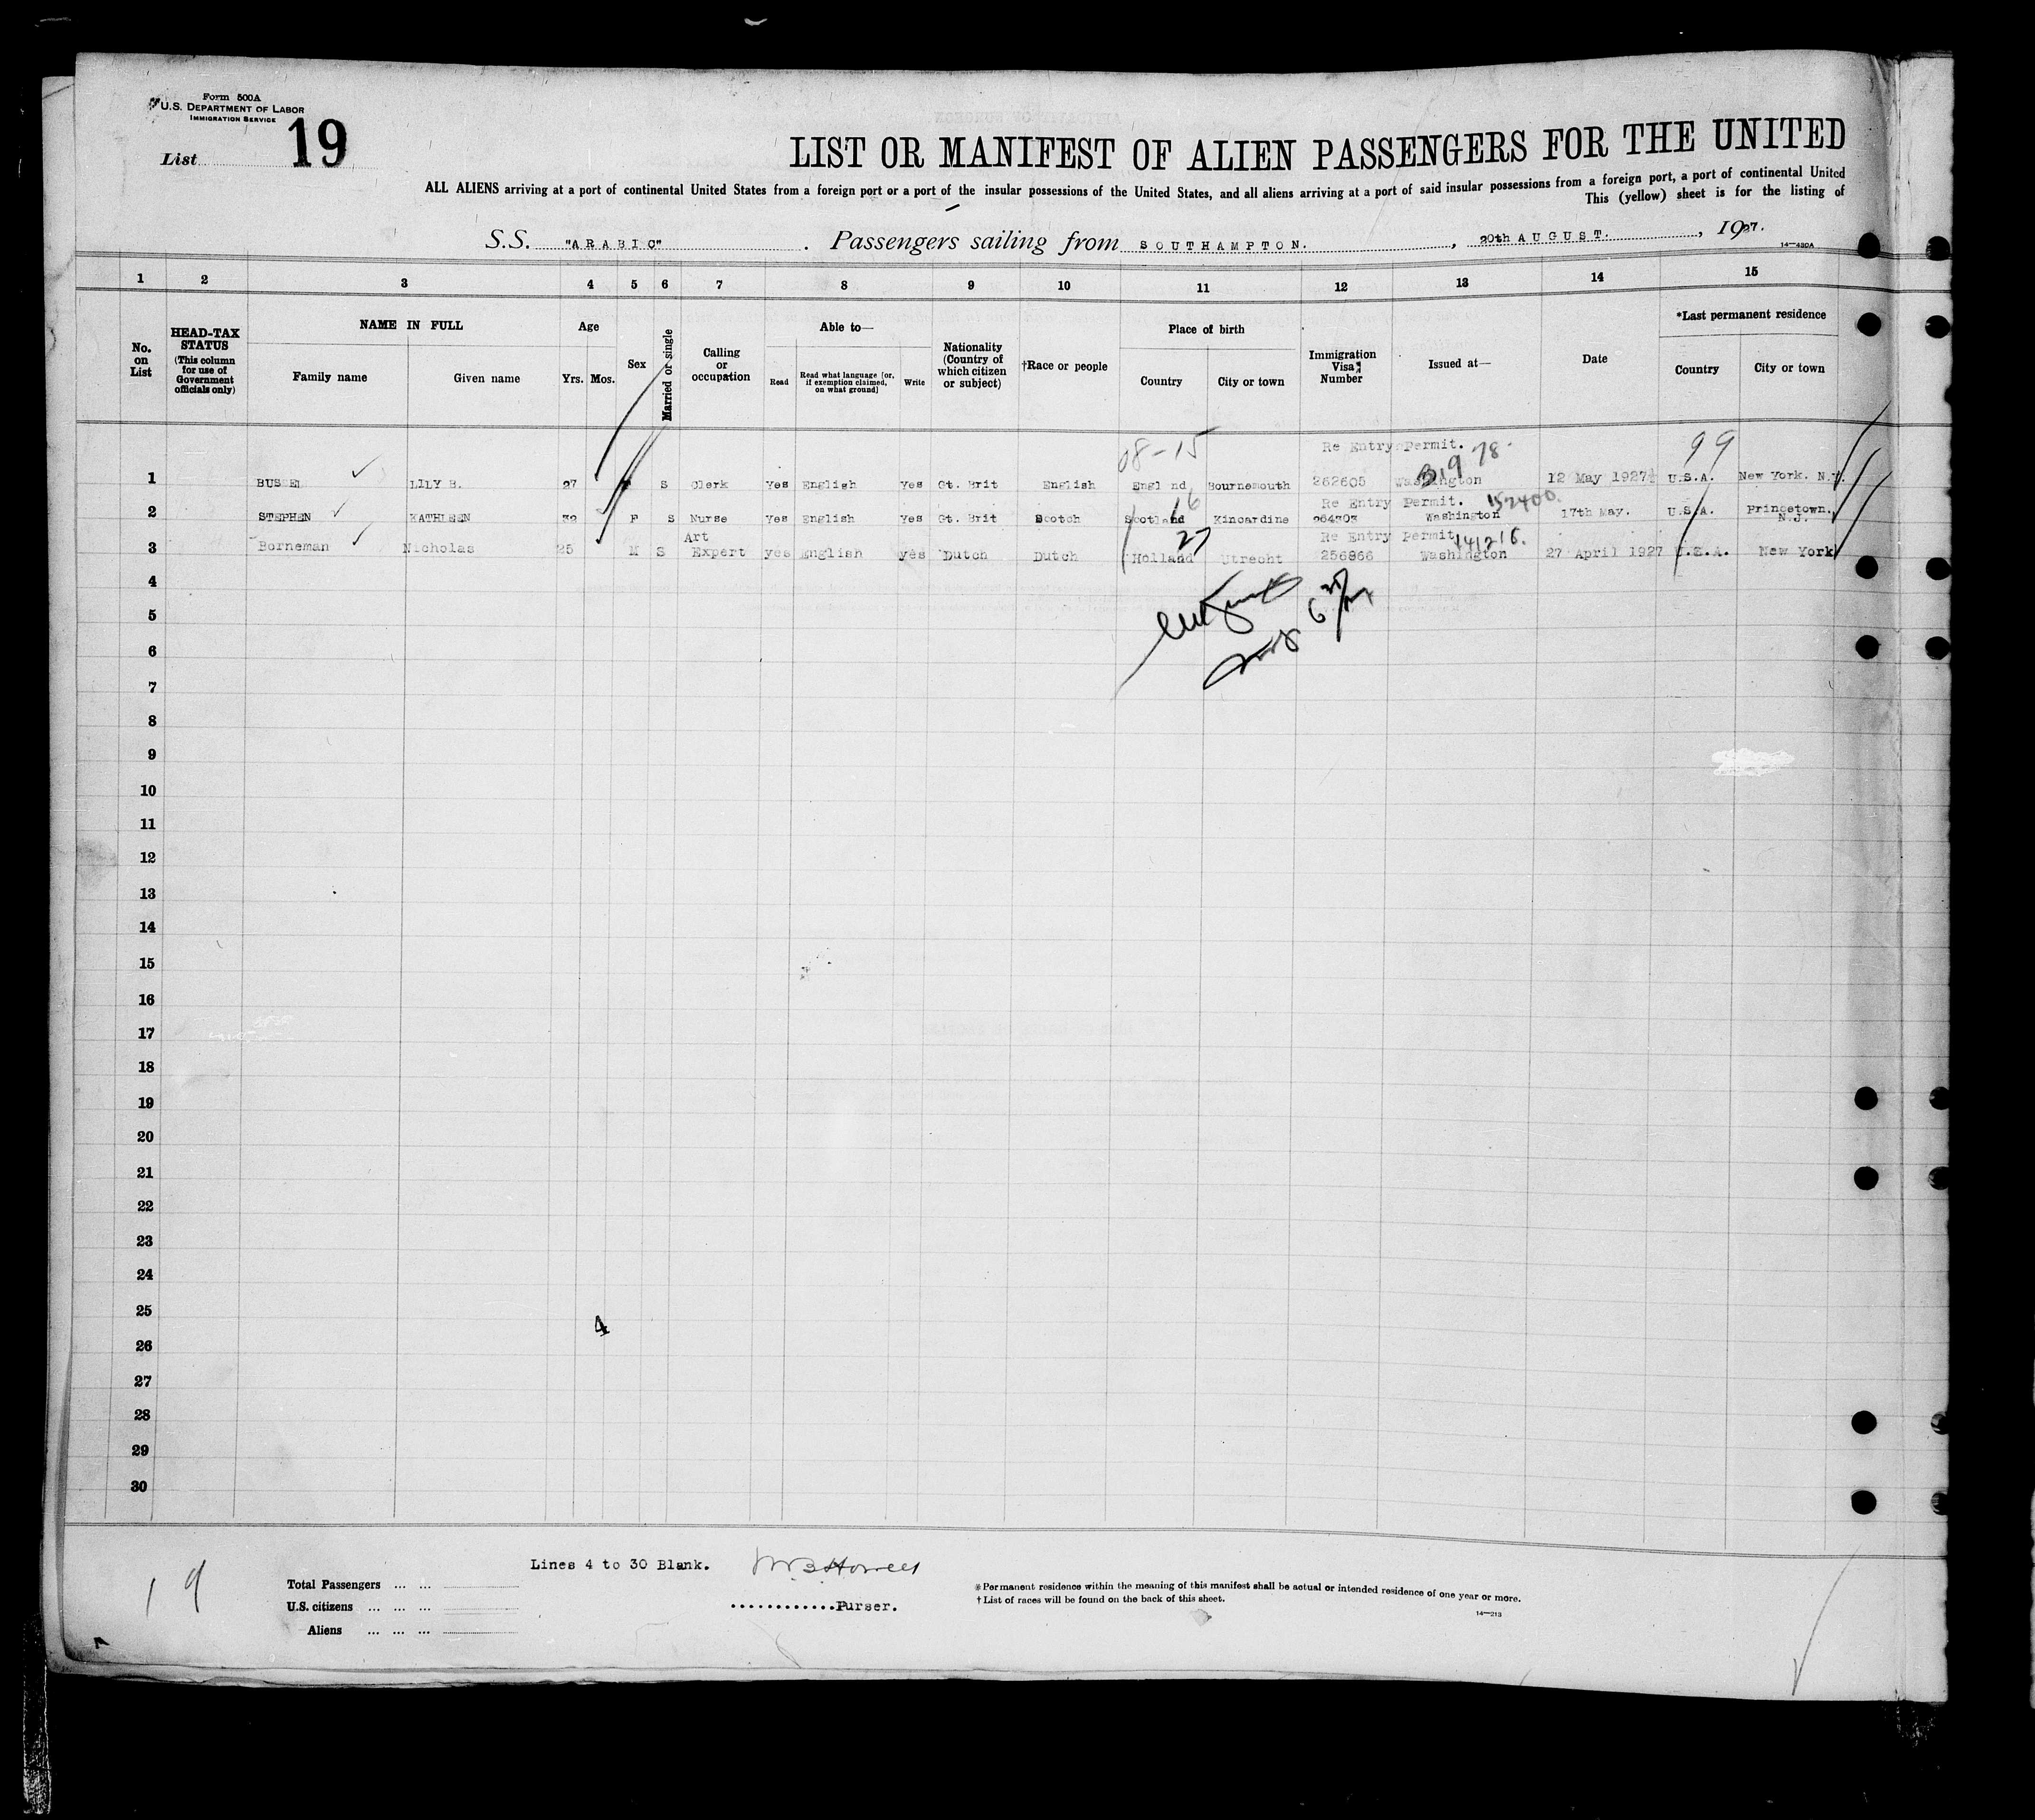 Form 500A
U.S. DEPARTMENT OF LABOR
IMMIGRATION SERVICE
List 19
LIST OR MANIFEST OF ALIEN PASSENGERS FOR THE UNITED
ALL ALIENS arriving at a port of continental United States from a foreign port or a port of the insular possessions of the United States, and all aliens arriving at a port of said insular possessions from a foreign port, a port of continental United
This (yellow) sheet is for the listing of
S.S. "ARABIC" . Passengers sailing from SOUTHAMPTON. , 20th AUGUST. , 1927.
14-430A
1 2 3 4 5 6 7 8 9 10 11 12 13 14 15
No. on List
HEAD-TAX STATUS (This column for use of Government officials only)
NAME IN FULL
Family name Given name
Age
Yrs. Mos.
Sex
Married or single
Calling or occupation
Able to—
Read Read what language (or, if exemption claimed, on what ground) Write
Nationality (Country of which citizen or subject)
†Race or people
Place of birth
Country City or town
Immigration Visa Number
Issued at—
Date
*Last permanent residence
Country City or town
08-15 Re Entry Permit. 319 78 99
1 LILY B. 27 S Clerk Yes English Yes Gt. Brit English Engl nd Bournemouth 262605 Washington 12 May 1927 U.S.A. New York. N.Y.
16 Re Entry Permit. 152400.
2 STEPHEN KATHLEEN 32 F S Nurse Yes English Yes Gt. Brit Scotch Scotland Kincardine 264303 Washington 17th May. U.S.A. Princetown. N.J.
Art 27 Re Entry Permit 141216.
3 Borneman Nicholas 25 M S Expert yes English yes Dutch Dutch Holland Utrecht 256866 Washington 27 April 1927 U.S.A. New York
4
5
6
7
8
9
10
11
12
13
14
15
16
17
18
19
20
21
22
23
24
25
4
26
27
28
29
30
19
Lines 4 to 30 Blank.
Total Passengers ... ...
U.S. citizens ... ... ...
Aliens ... ... ...
W B Howell
............Purser.
*Permanent residence within the meaning of this manifest shall be actual or intended residence of one year or more.
†List of races will be found on the back of this sheet.
14-213